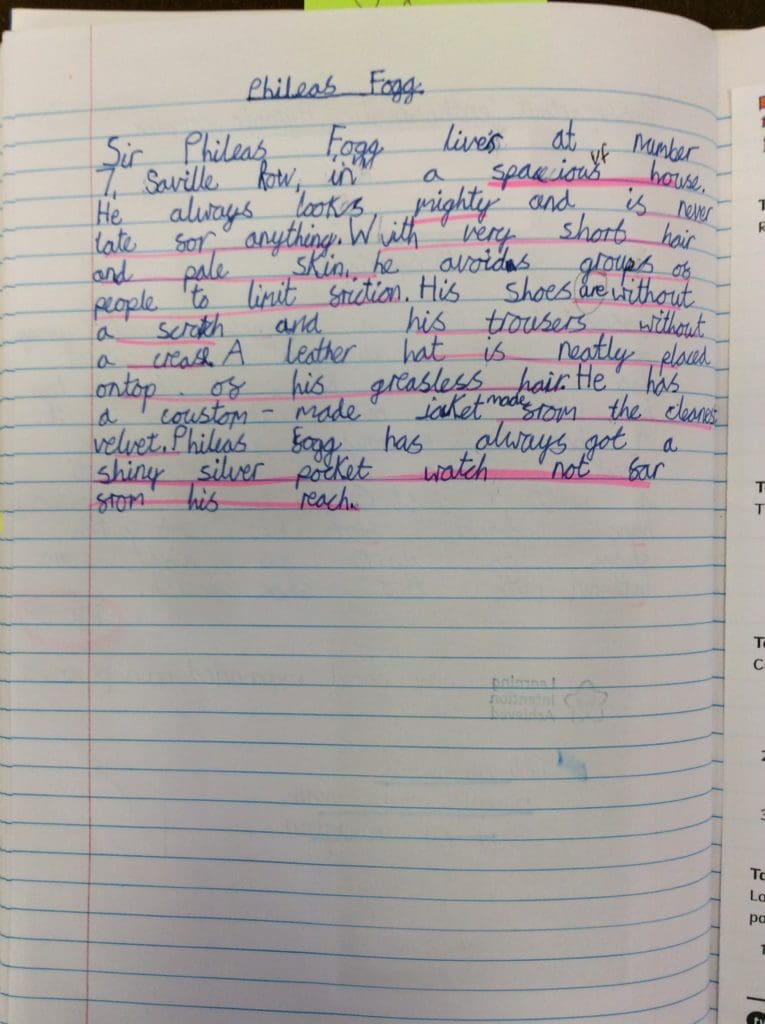 Phileas Fogg
Sir Phileas Fogg lives at number
7, Saville Row, in a spacious house.
He always looks mighty and is never
late for anything. With very short hair
and pale skin, he avoids groups of
people to limit friction. His shoes are without
a scratch and his trousers without
a crease. A leather hat is neatly placed
ontop of his greasless hair. He has
a coustom - made jacket made from the cleanest
velvet. Phileas Fogg has always got a
shiny silver pocket watch not far
from his reach.
Learning
Intention
Achieved